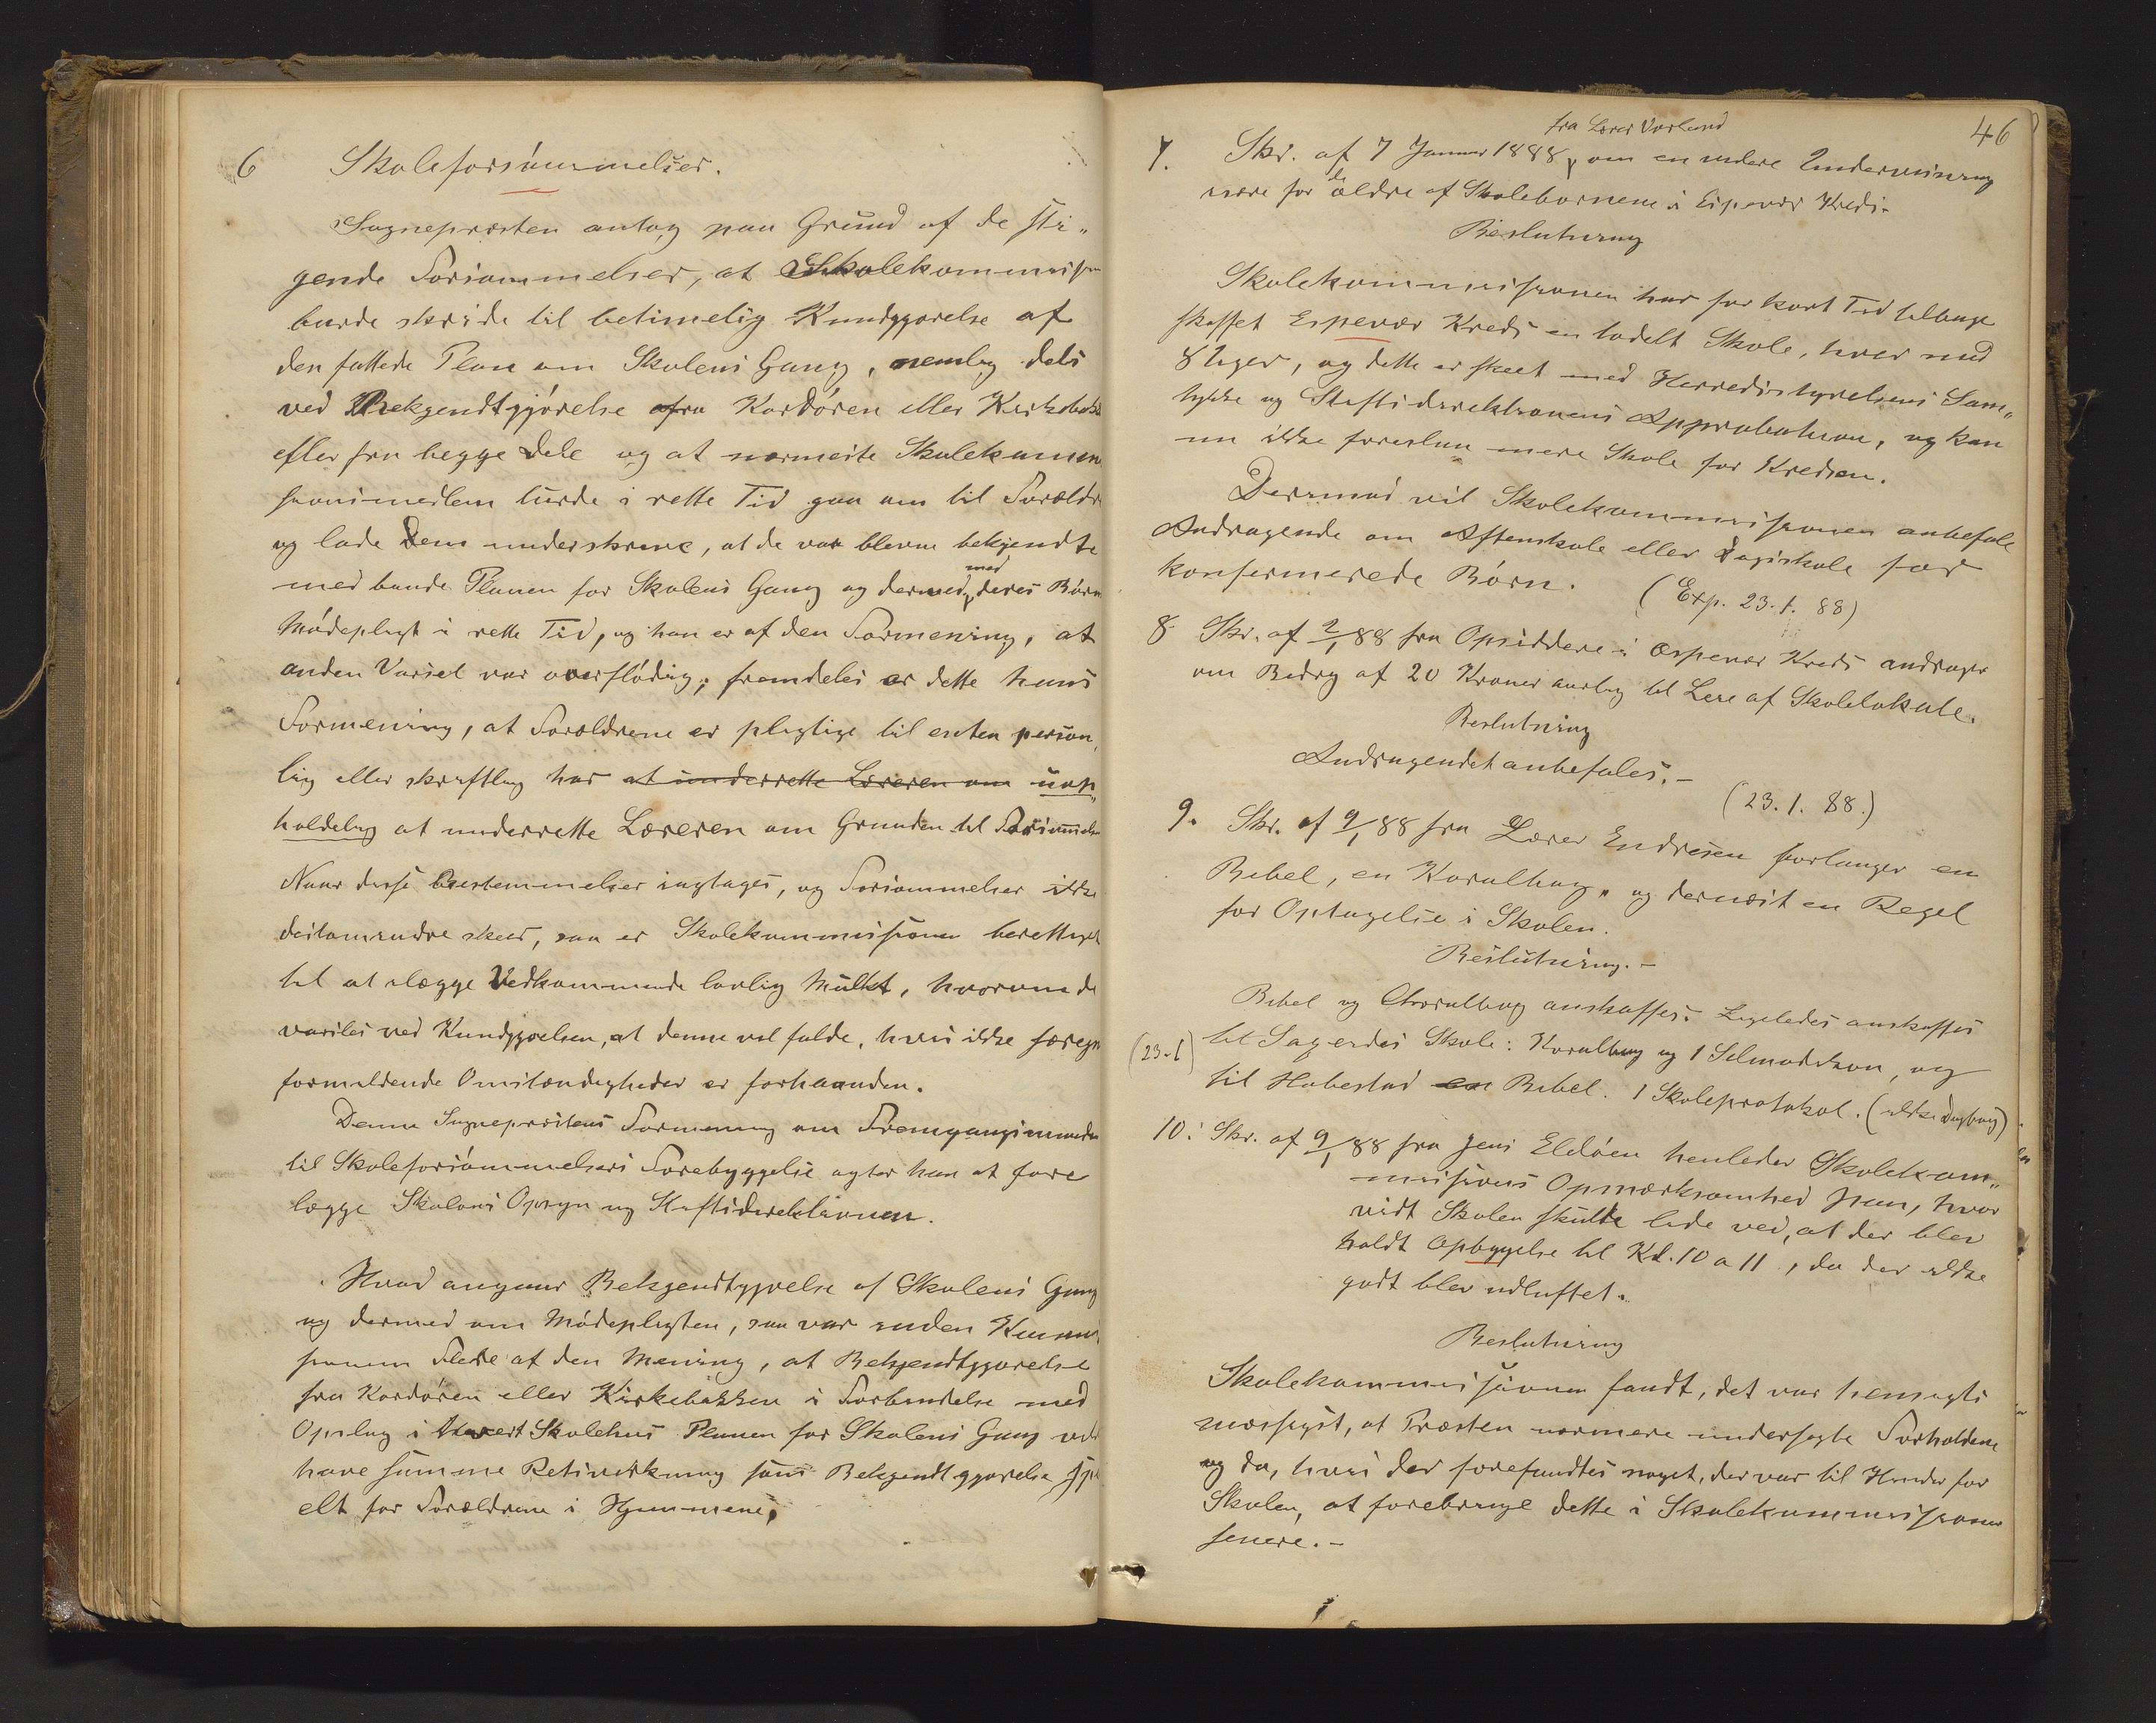 6 Skoleforsömmelser.
Sognepræsten antog paa Grund af de sti„
gende Forsømmelser, at Skolekommiss
burde skride til betimelig Kundgjørelse af
den fattede Plan om Skolens Gang, nemlig dels
ved Bekjendtgjørelse fra Kordøren eller Kirkebak
eller fra begge Dele og at nærmeste Skolekommis
sionsmedlem burde i rette Tid gaa om til Forældr
og lade Dem underskrive, at de var blevne bekjendte
med baade Planen for Skolens Gang og dermed med deres Børn
Mödepligt i rette Tid, og han er af den Formening, at
anden Varsel var overflödig; fremdeles er dette hans
Formening, at Forældrene er pligtige til enten person„
lig eller skriftlig har at underrette Læreren om uop„
holdelig at underrette Læreren om Grunden til Forsömmels
Naar disse Bestemmelser iagtages, og Forsømmelser ikke
destomindre skeer, saa er Skolekommissionen berettiget
til at ilægge Vedkommende lovlig Mulkt, hvorom de
varsles ved Kundgjørelsen, at denne vil falde, hvis ikke særegn
formildende Omstændigheder er forhaanden.
Denne Sognepræstens Formening om Fremgangsmaaden
til Skoleforsömmelsers Forebyggelse agter han at fore
lægge Skolens Opsyn og Stiftsdirektionen.
Hvad angaar Bekjendtgjørelse af Skolens Gang
og dermed om Mödepligten, saa var inden Kommis
sionen Flere af den Mening, at Bekjendtgjørelse
fra Kordören eller Kirkebakken i Forbindelse med
Opslag i hvert Skolehus Planen for Skolens Gang vil
have samme Retsvirkning som Bekjendtgjørelse spe
elt for Forældrene i Hjemmene.
46
fra Lærer Vorland
7. Skr. af 7 Januar 1888, om en videre Undervisning
være for de ældre af Skolebørnene i Espevær Kreds.
Beslutning
Skolekommissionen har for kort Tid tilbage
skaffet Espevær Kreds en todelt Skole, hver med
8 Uger, og dette er skeet med Herredsstyrelsens Sam„
tykke og Stiftsdirektionens Approbation, og kan
nu ikke foreslaa mere Skole for Kredsen.
Derimod vil Skolekommissionen anbefale
Andragende om Aftenskole eller Dagskole for
konfirmerede Börn. (Exp. 23.1.88)
8. Skr. af 2/1 88 fra Opsiddere i Espevær Kreds andrager
om Bidrag af 20 Kroner aarlig til Leie af Skolelokale.
Beslutning
Andragendet anbefales. –
(23.1.88.)
9. Skr. af 9/1 88 fra Lærer Endresen forlanger en
Bibel, en Koralbog, og dernæst en Regel
for Optagelse i Skolen.
Beslutning. –
Bibel og Choralbog anskaffes. Ligeledes anskaffes
(23.1) til Sagerdes Skole: Koralbog og 1 Selmodikon, og
til Habestad en Bibel. 1 Skoleprotokol. (ikke Dagbog)
10. Skr. af 9/1 88 fra Jens Eldöen henleder Skolekom„
missions Opmærksomhed paa, hvor
vidt Skolen skulde lide ved, at der blev
holdt Opbyggelse til Kl. 10 a 11, da der ikke
godt blev udluftet.
Beslutning
Skolekommissionen fandt, det var hensigts
mæssigst, at Præsten nærmere undersøgte Forholdene
og da, hvis der forefandtes noget, der var til Hinder for
Skolen, at forebringe dette i Skolekommissionen
senere. –